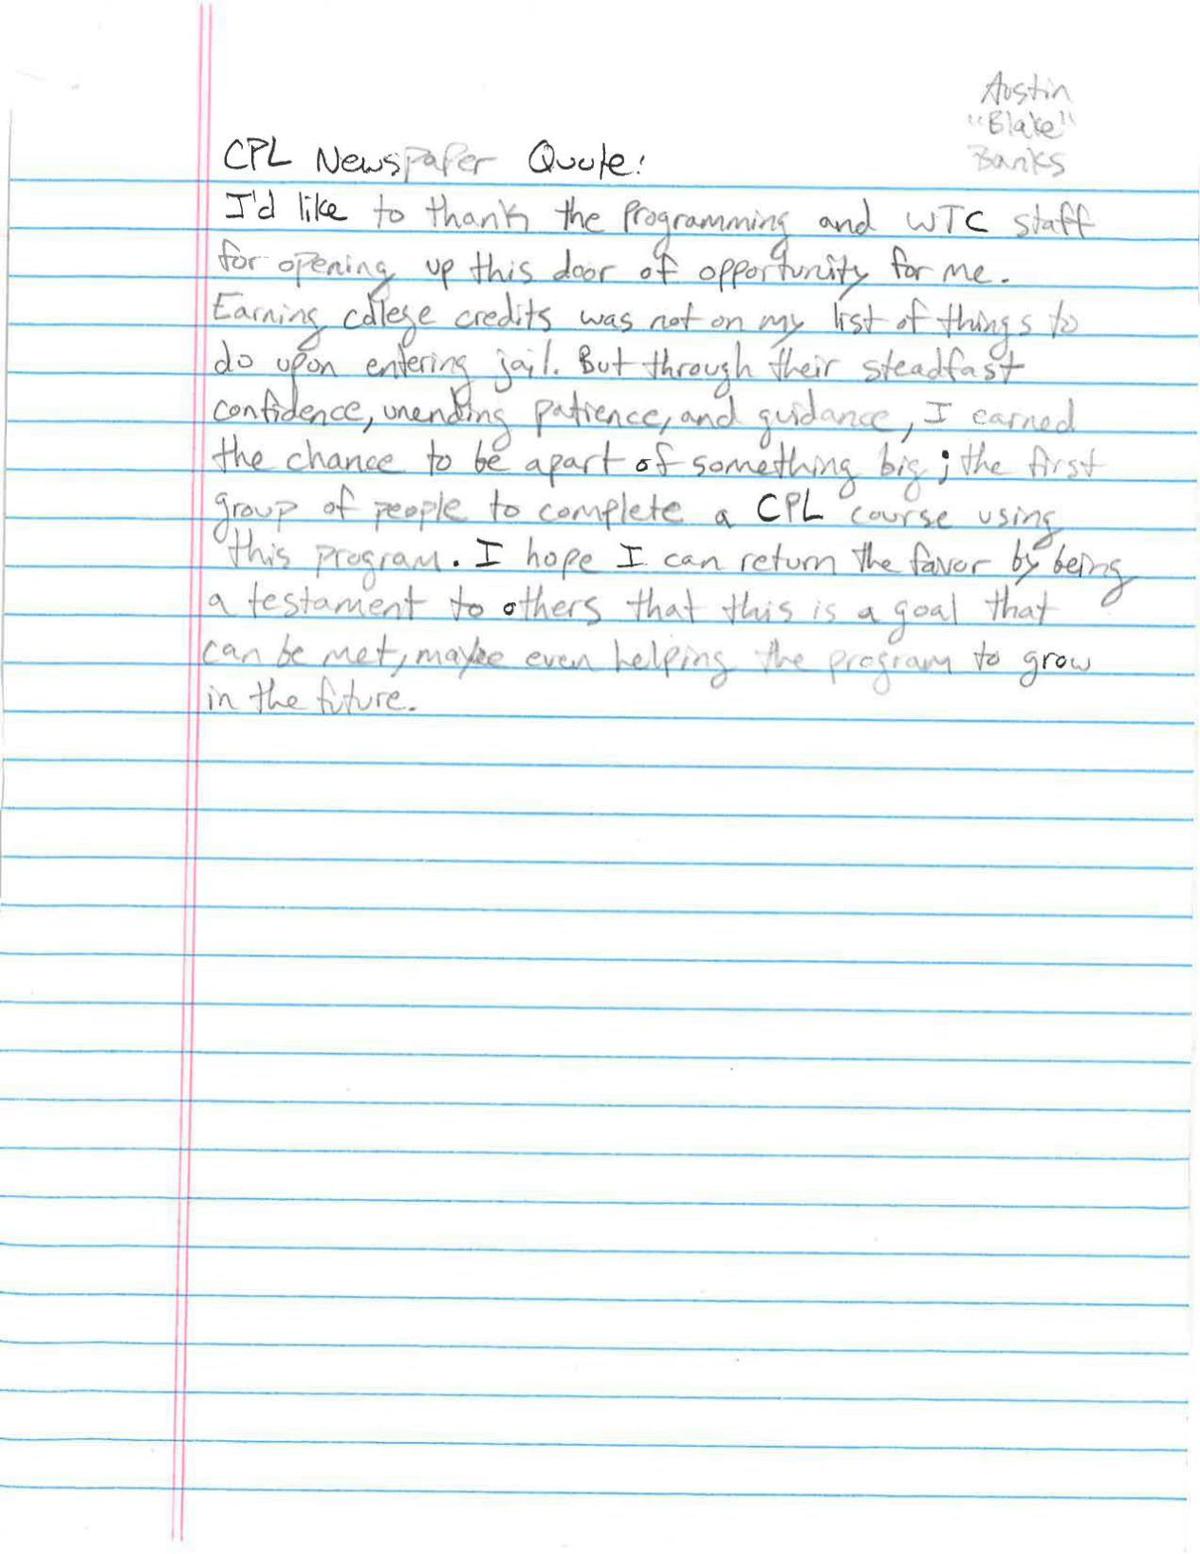 Austin
"Blake"
Banks
CPL Newspaper Quote:
I'd like to thank the Programming and WTC staff
for opening up this door of opportunity for me.
Earning college credits was not on my list of things to
do upon entering jail. But through their steadfast
confidence, unending patience, and guidance, I earned
the chance to be apart of something big; the first
group of people to complete a CPL course using
this program. I hope I can return the favor by being
a testament to others that this is a goal that
can be met, maybe even helping the program to grow
in the future.